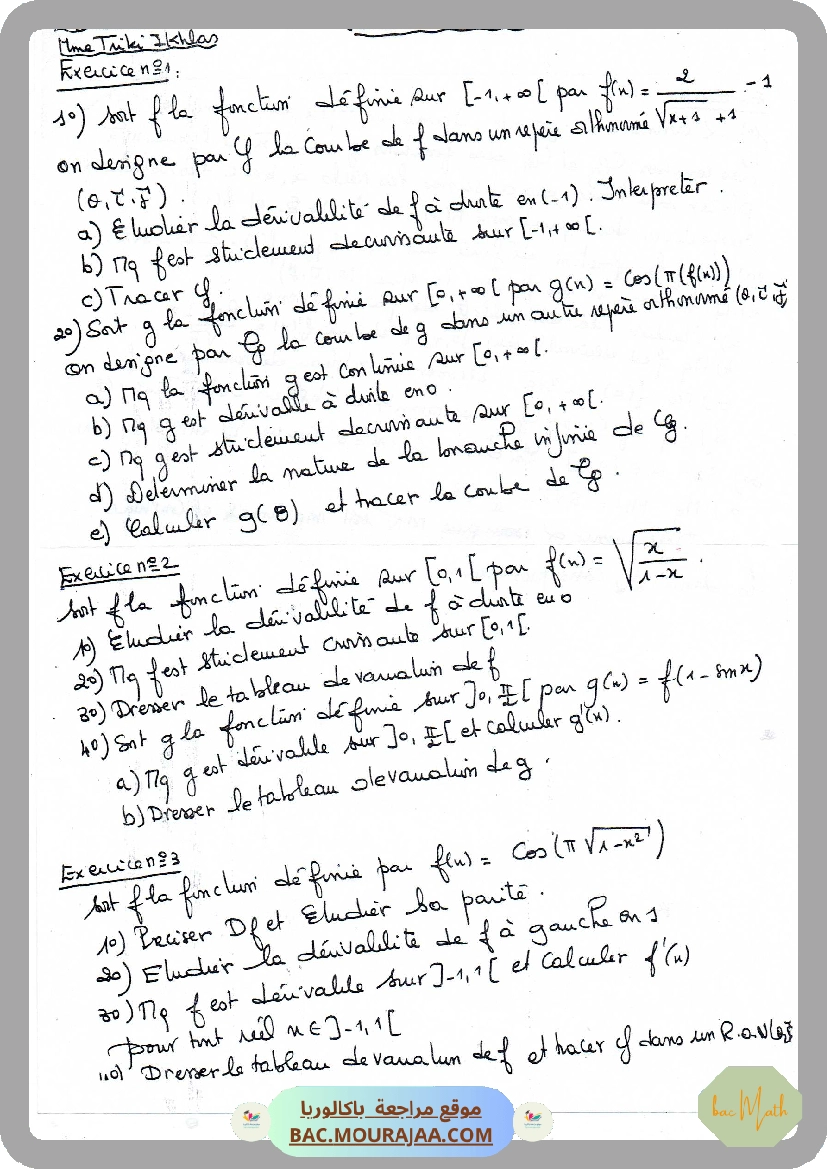 Mme Triki Ikhlas
Exercice n°1:
1°) Soit f la fonction définie sur [-1,+∞[ par f(x) = 2/(√(x+1) +1) -1
on designe par 𝒞f la Courbe de f dans un repère orthonormé
(O,i⃗,j⃗).
a) Etudier la dérivabilité de f à droite en (-1). Interpreter.
b) Mq f est strictement decroissante sur [-1,+∞[.
c) Tracer 𝒞f.
2°) Soit g la fonction définie sur [0,+∞[ par g(x) = Cos(π(f(x)))
On designe par 𝒞g la courbe de g dans un autre repère orthonormé (O,i⃗,j⃗)
a) Mq la fonction g est continue sur [0,+∞[.
b) Mq g est dérivable à droite en 0.
c) Mq g est strictement decroissante sur [0,+∞[.
d) Déterminer la nature de la branche infinie de 𝒞g.
e) Calculer g(8) et tracer la courbe de 𝒞g.
Exercice n°2
Soit f la fonction définie sur [0,1[ par f(x) = √(x/(1-x)).
1°) Etudier la dérivabilité de f à droite en 0
2°) Mq f est strictement croissante sur [0,1[.
3°) Dresser le tableau de variation de f
4°) Soit g la fonction définie sur ]0,π/2[ par g(x) = f(1-sinx)
a) Mq g est dérivable sur ]0,π/2[ et calculer g'(x).
b) Dresser le tableau de variation de g.
Exercice n°3
Soit f la fonction définie par f(x) = Cos(π√(1-x²))
1°) Preciser Df et Etudier sa parité.
2°) Etudier la dérivabilité de f à gauche en 1
3°) Mq f est dérivable sur ]-1,1[ et Calculer f'(x)
pour tout réel x∈]-1,1[
4°) Dresser le tableau de variation de f et tracer 𝒞f dans un R.O.N (O,i⃗,j⃗)
موقع مراجعة باكالوريا
BAC.MOURAJAA.COM
bac Math